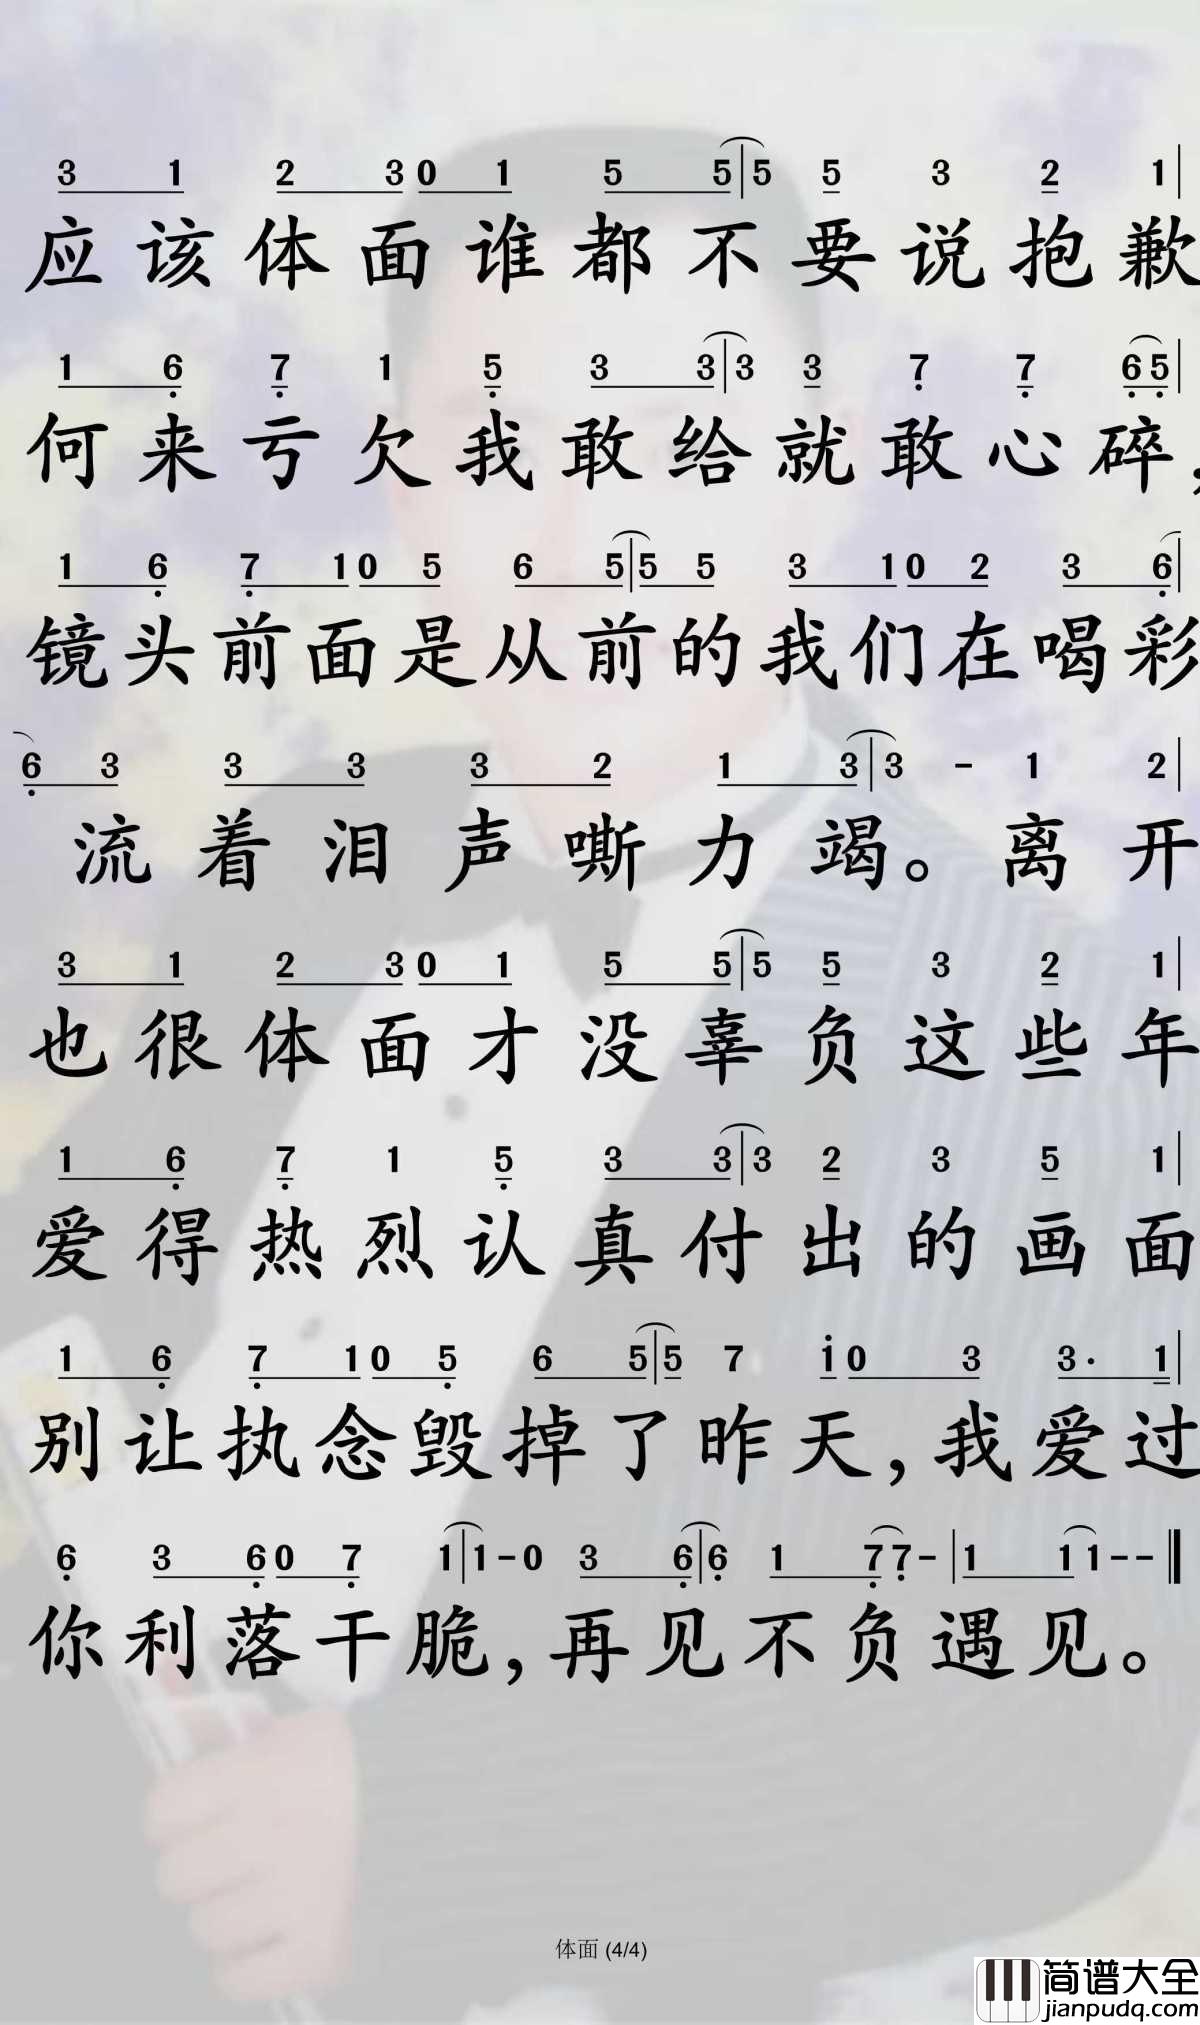 3 1 2 3 0 1 5 5 | 5 5 3 2 1 |
应该体面谁都不要说抱歉
1 6 7 1 5 3 3 | 3 3 7 7 6 5 |
何来亏欠我敢给就敢心碎,
1 6 7 1 0 5 6 5 | 5 5 3 1 0 2 3 6 |
镜头前面是从前的我们在喝彩
6 3 3 3 3 2 1 3 | 3 - 1 2 |
流着泪声嘶力竭。离开
3 1 2 3 0 1 5 5 | 5 5 3 2 1 |
也很体面才没辜负这些年
1 6 7 1 5 3 3 | 3 2 3 5 1 |
爱得热烈认真付出的画面
1 6 7 1 0 5 6 5 | 5 7 i 0 3 3· 1 |
别让执念毁掉了昨天,我爱过
6 3 6 0 7 1 | 1 - 0 3 6 | 6 1 7 7 - | 1 1 1 - - ‖
你利落干脆,再见不负遇见。
体面 (4/4)
简谱大全
jianpudq.com